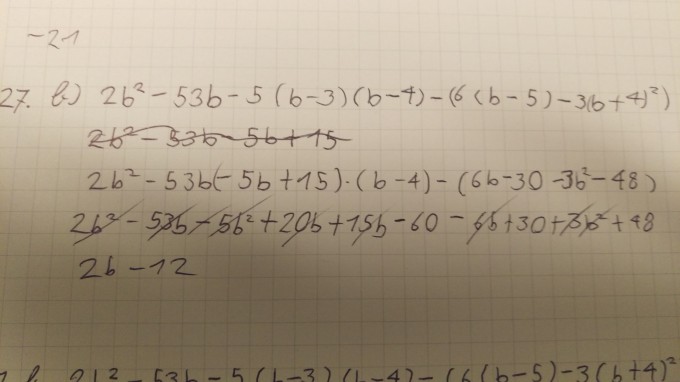 -21
27. b) 2b² - 53b - 5 (b-3) (b-4) - (6 (b-5) - 3(b+4)²)
2b² - 53b - 5b + 15
2b² - 53b(- 5b + 15) · (b-4) - (6b-30 -3b² - 48)
2b² - 53b - 5b² + 20b + 15b - 60 - 6b + 30 + 3b² + 48
2b - 12
2b² - 53b - 5 (b-3) (b-4) - (6 (b-5) - 3 (b+4)²